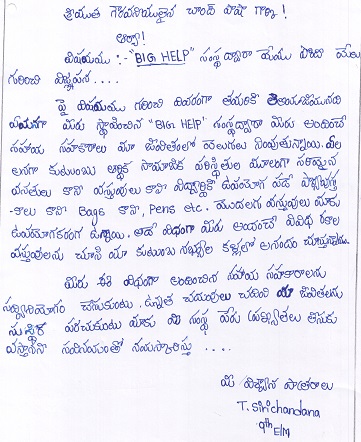 శ్రీయుత గౌరవనీయులైన చాంద్ పాషా గార్కి!
ఆర్యా!
విషయము :- "BIG HELP" సంస్థ ద్వారా మేము పొందే మేలు
గురించి విజ్ఞాపన....
పై విషయము గురించి వివరంగా తమరికి తెలియజేయునది
ఏమనగా మీరు స్థాపించిన "BIG HELP" సంస్థ ద్వారా మీరు అందించే
సహాయ సహకారాలు మా జీవితంలో వెలుగులు నింపుతున్నాయి. ఎలా
అనగా కుటుంబ ఆర్థిక సామాజిక పరిస్థితుల మూలంగా సరియైన
వసతులు కాని వస్తువులు కాని విద్యార్థికి ఉపయోగ పడే పాఠ్యపుస్త
-కాలు కాని Bags కాని, Pens etc. మొదలగు వస్తువులు మాకు
ఉపయోగకరంగా ఉన్నాయి. అదే విధంగా మీరు అందించే వివిధ రకాల
వస్తువులను చూసి మా కుటుంబ సభ్యుల కళ్ళల్లో ఆనందం చూస్తున్నాను.
మీరు ఈ విధంగా అందించిన సహాయ సహకారాలను
సద్వినియోగం చేసుకుంటు. ఉన్నత చదువులు చదివి మా జీవితాలను
సుస్థిర పరచుకుంటు మాకు మీ సంస్థ పేరు ప్రఖ్యాతలు తీసుకు
వస్తానని సవినయంతో నమస్కారిస్తు ....
మీ విశ్వాస పాత్రురాలు
T. Sirichandana
9th E/M